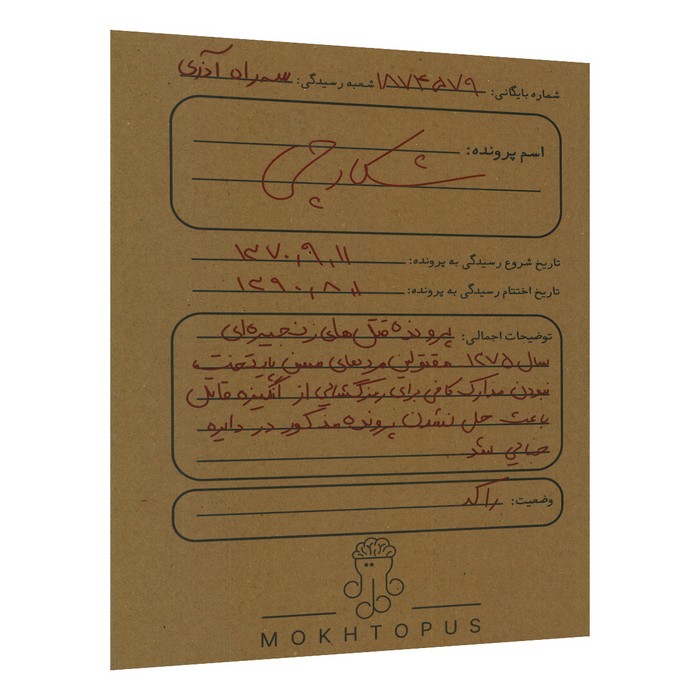 شماره بایگانی: ۱۸۷۴۵۷۹ شعبه رسیدگی: سمراه آذری
اسم پرونده:
شکارچی
تاریخ شروع رسیدگی به پرونده: ۱۳۷۰,۹,۱۱
تاریخ اختتام رسیدگی به پرونده: ۱۳۹۰,۸,۱
توضیحات اجمالی: پرونده قتل‌های زنجیره‌ای
سال ۱۳۷۵ مقتولین مردهای مسن پایتخت
نبودن مدارک کافی برای رمزگشایی از انگیزه قاتل
باعث حل نشدن پرونده مذکور در دایره
جنایی شد
وضعیت: راکد
MOKHTOPUS